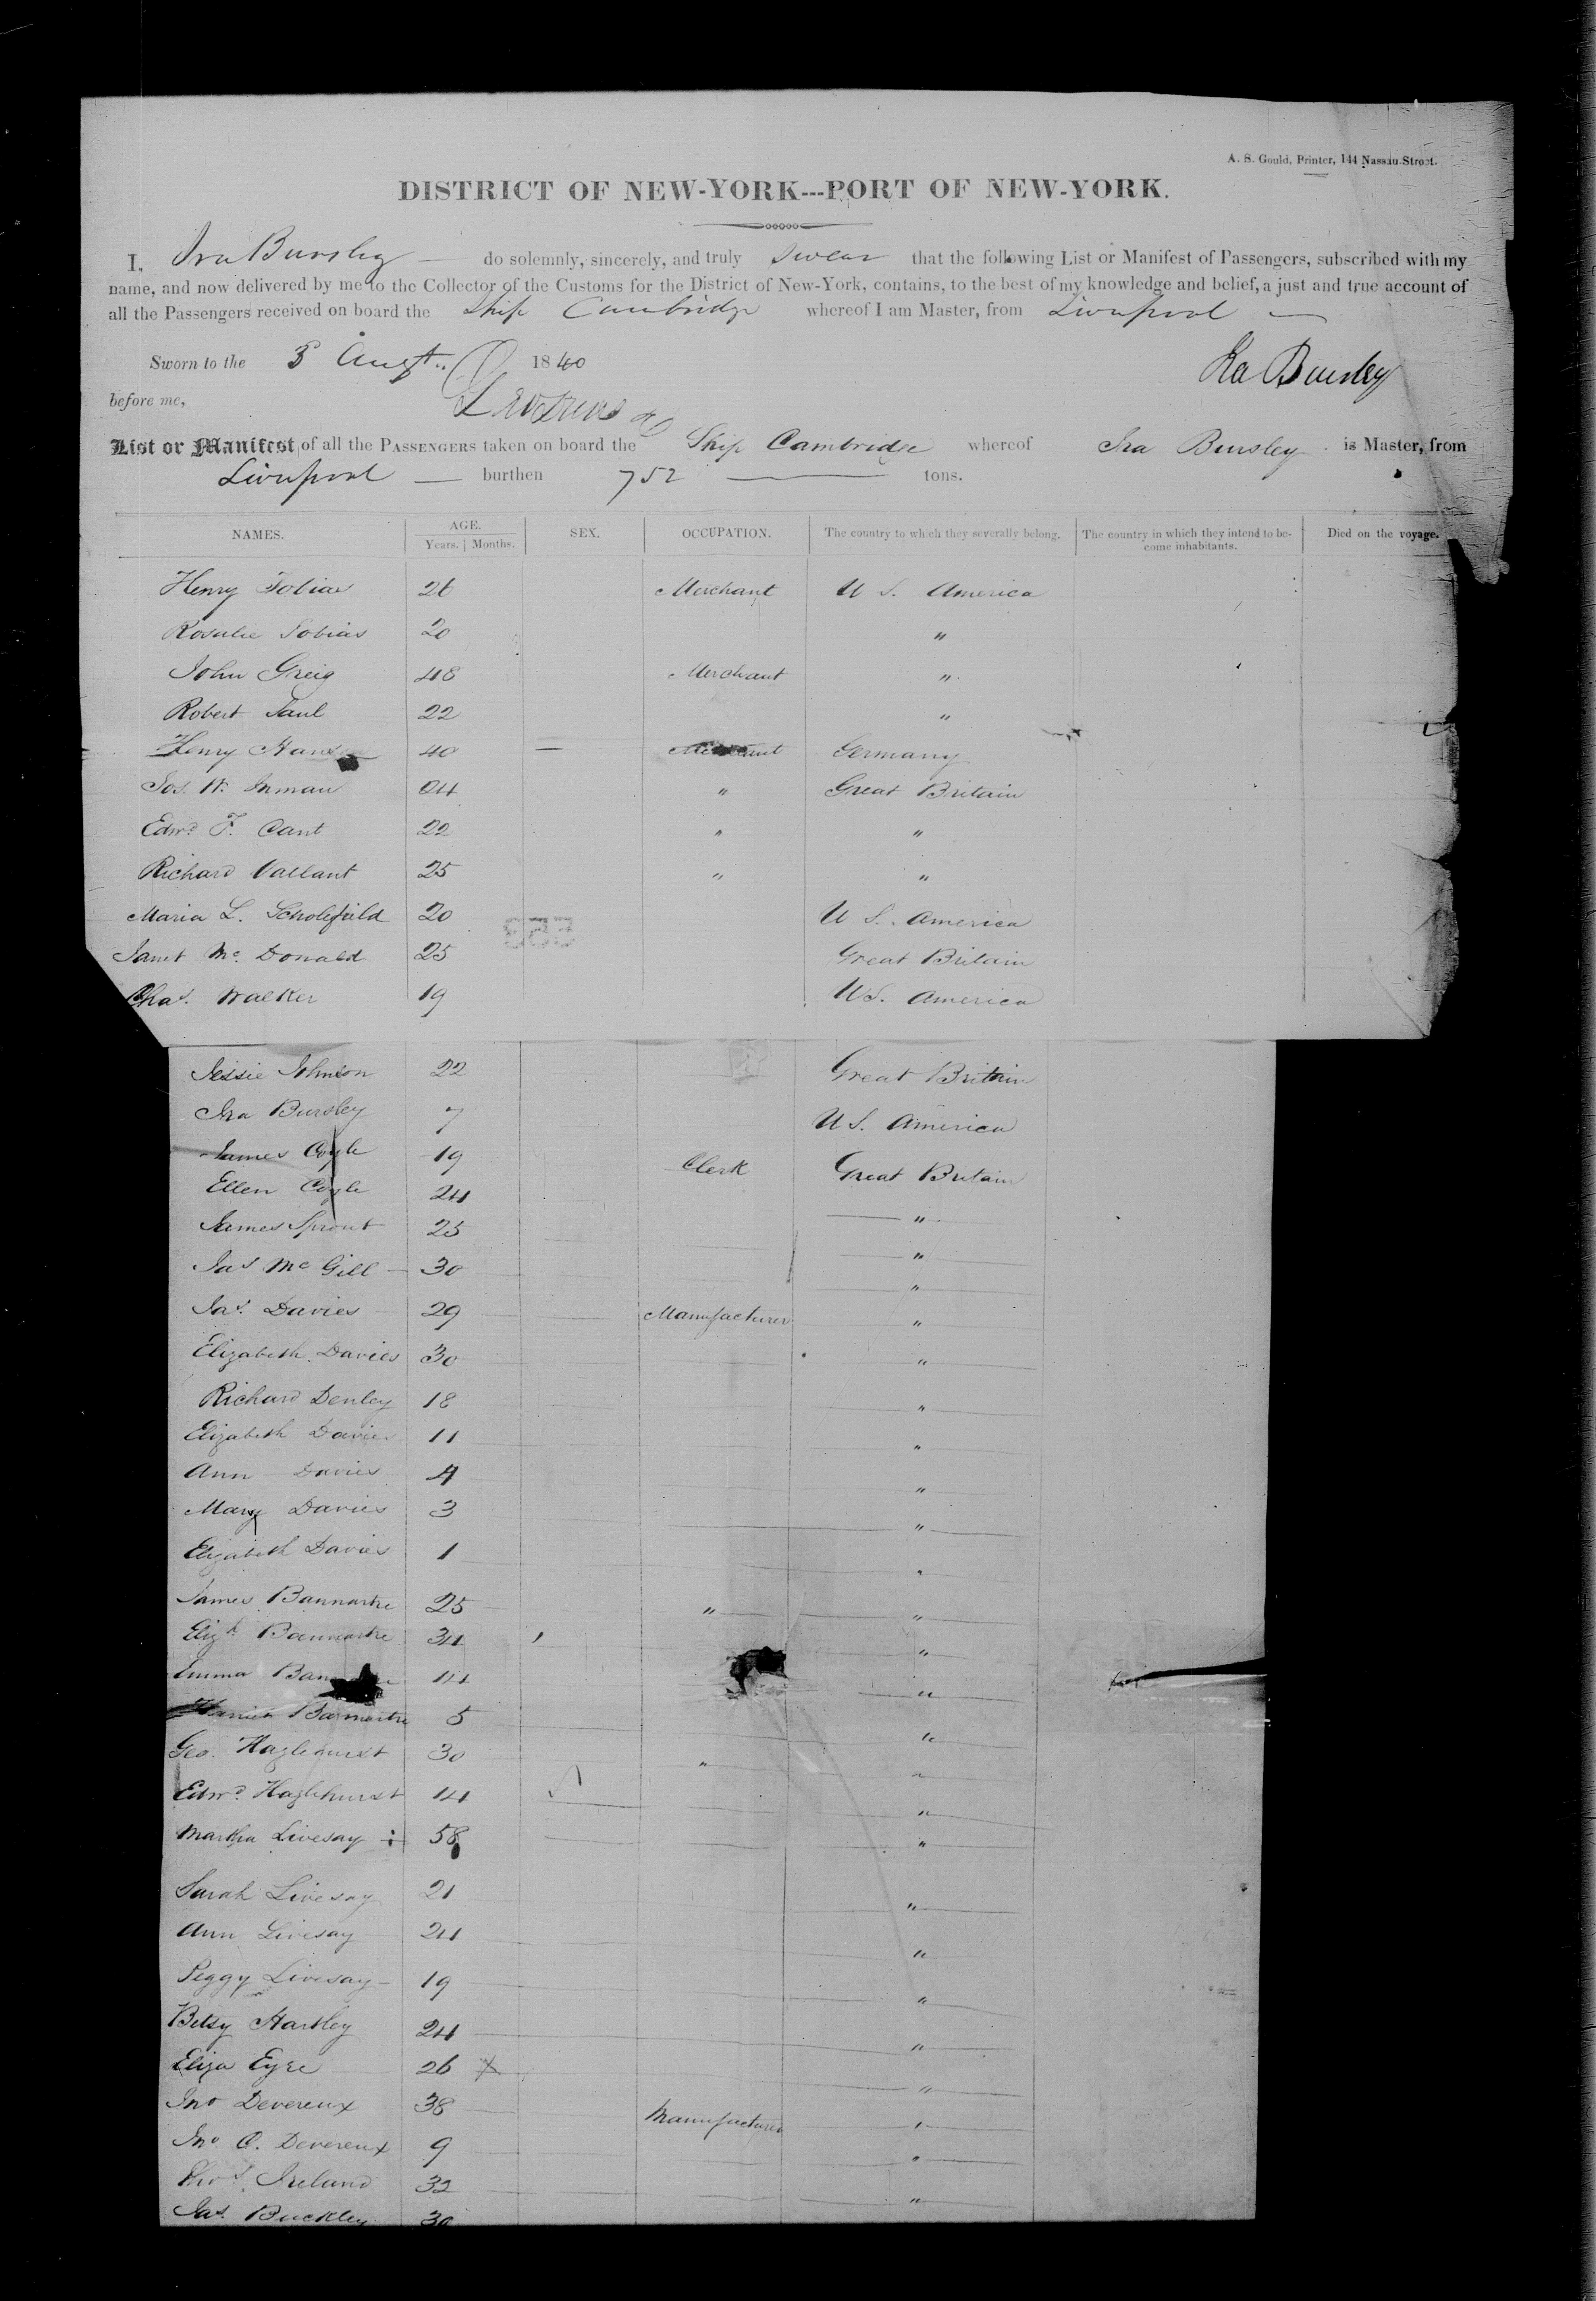 A. S. Gould, Printer, 144 Nassau-Street.
DISTRICT OF NEW-YORK---PORT OF NEW-YORK.
I, Ira Bursley — do solemnly, sincerely, and truly swear that the following List or Manifest of Passengers, subscribed with my
name, and now delivered by me to the Collector of the Customs for the District of New-York, contains, to the best of my knowledge and belief, a just and true account of
all the Passengers received on board the Ship Cambridge whereof I am Master, from Liverpool —
Sworn to the 3 Augt. 1840
Ira Bursley
before me,
List or Manifest of all the PASSENGERS taken on board the Ship Cambridge whereof Ira Bursley is Master, from
Liverpool — burthen 752 — tons.
NAMES. AGE. Years. | Months. SEX. OCCUPATION. The country to which they severally belong. The country in which they intend to become inhabitants. Died on the voyage.
Henry Tobias 26 Merchant U S. America
Rosalie Tobias 20 "
John Greig 48 Merchant "
Robert Saul 22 "
Henry 40 — Merchant Germany
Jos. W. Inman 24 " Great Britain
Edwd. F. Cant 22 " "
Richard Vallant 25 " "
Maria L. Scholefield 20 U S. America
Janet Mc. Donald 25 Great Britain
Chas. Walker 19 U S. America
Jessie Johnson 22 Great Britain
Ira Bursley 7 U S. America
James Coyle 19 Clerk Great Britain
Ellen Coyle 24 "
James Sprout 25 "
Jas Mc Gill 30 "
Jas. Davies 29 Manufacturer "
Elizabeth Davies 30 "
Richard Denley 18 "
Elizabeth Davies 11 "
Ann Davies 4 "
Mary Davies 3 "
Elizabeth Davies 1 "
James Bannartre 25 " "
Elizh Bannartre 34 "
Emma 14 "
Bannartre 5 "
Geo. Hazlehurst 30 " "
Edwd. Hazlehurst 14 "
Martha Livesay 58 "
Sarah Livesay 21 "
Ann Livesay 24 "
Peggy Livesay 19 "
Betsy Hartley 24 "
Eliza Eyre 26 x "
Jno Devereux 38 Manufacturer "
Jno. C. Devereux 9 "
Thos. Ireland 32 "
Jas. Buckley 30